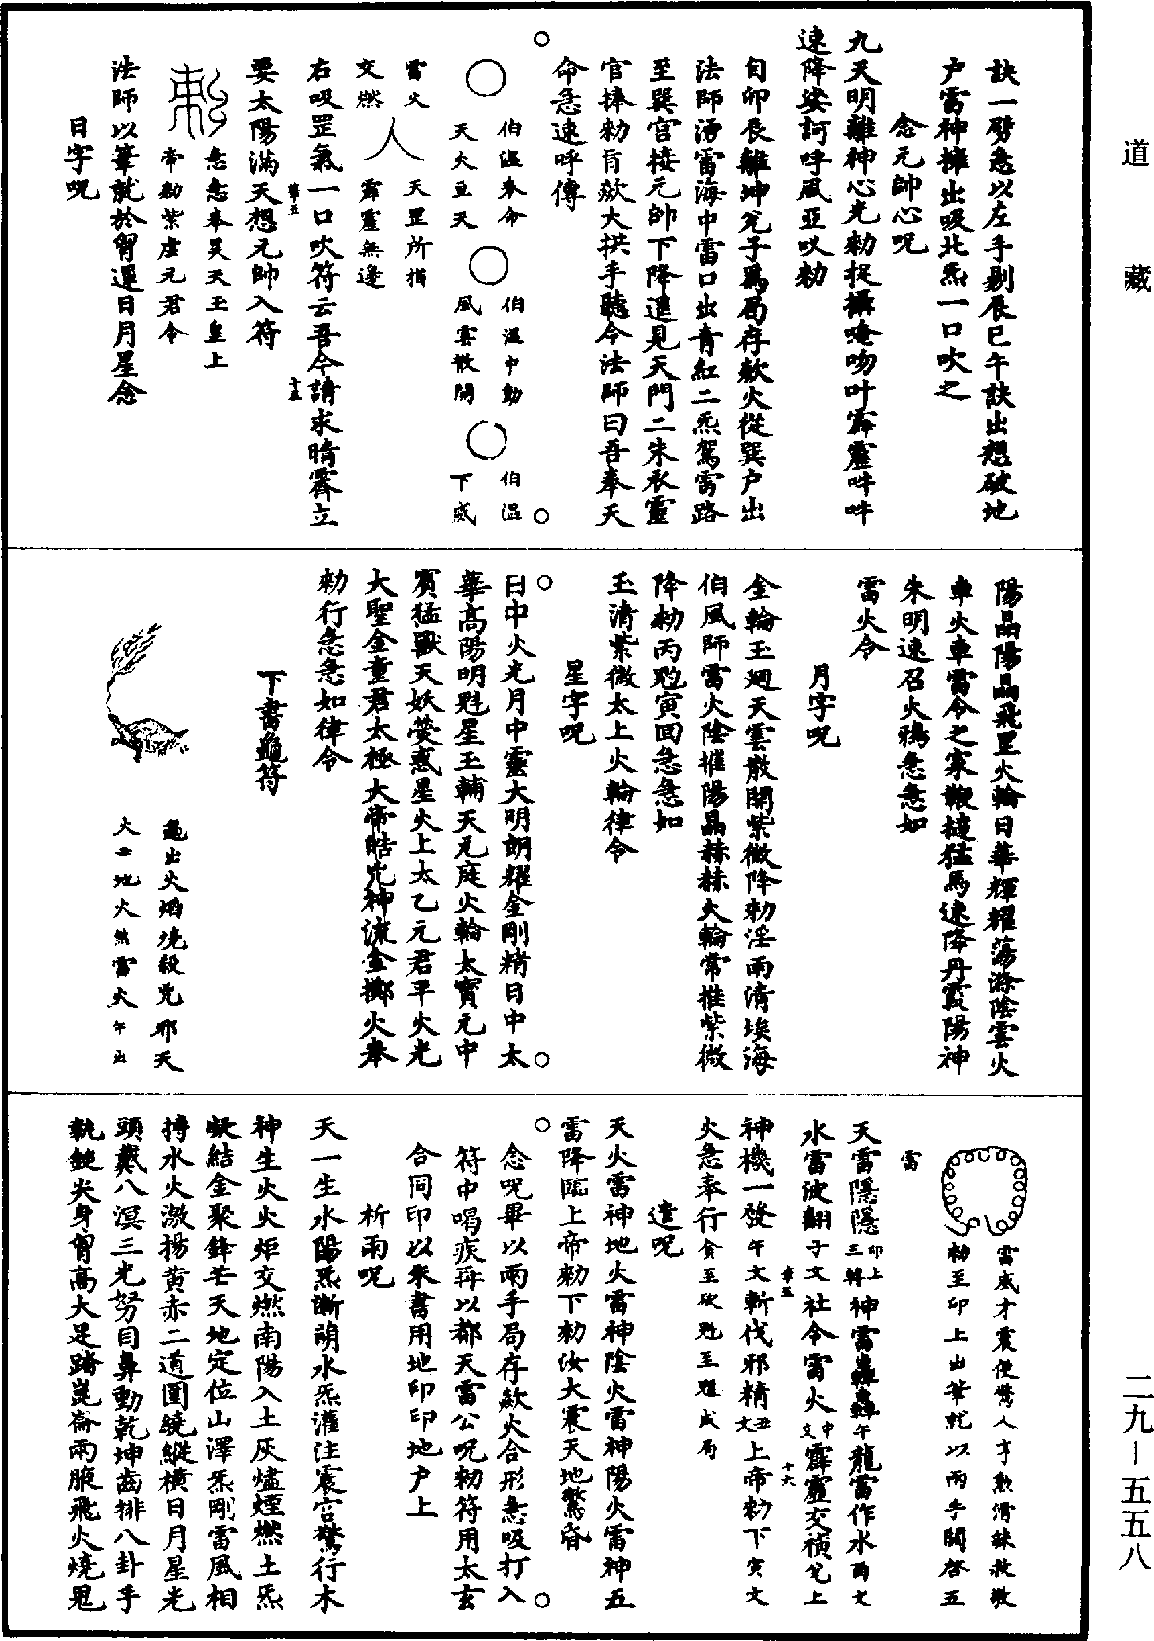 訣一劈急以左手剔辰巳午訣出想破地
戶雷神擁出吸北炁一口吹之
念元帥心呪
九天明離神心光勑捉攝唵吻叶霹靂吽吽
速降娑訶呼風亞㕭勑
自卯辰離坤兌子爲局存歘火從巽戶出
法師湧雷海中雷口出青紅二炁駕雷路
至巽宮接元帥下降進見天門二朱衣靈
官捧勑旨歘大拱手聽令法師曰吾奉天
命急速呼傳
伯溫奉命
天火亘天
伯溫中動
風雲散開
伯溫
下威
雷火
交燃
天罡所指
霹靂無邊
右吸罡氣一口吹符云吾今請求晴霽立
要太陽滿天想元帥入符
急急奉昊天玉皇上
帝勑紫虛元君令
法師以筆就於胷運日月星念
日字呪
陽晶陽晶飛罡火輪日華輝耀蕩滌陰雲火
車火車雷令之家鞭撻猛馬速降丹霞陽神
朱明速召火鴉急急如
雷火令
月字呪
金輪玉廻天雲散開紫微降勑淫雨清埃海
伯風師雷火陰摧陽晶赫赫火輪常推紫微
降勑丙尅寅囬急急如
玉清紫微太上火輪律令
星字呪
日中火光月中靈大明朗耀金剛精日中太
華高陽明尅星玉輔天元庭火輪太寳元中
賓猛獸天妖熒惑星火上太乙元君平火光
大聖金童君太極大帝皓光神流金擲火奉
勑行急急如律令
下書龜符
龜出火焰燒殺兇邪天
火亘地火無雷火午出
雷威才震使驚人
勑至印上出筆就以兩手開啓五
雷
天雷隱隱印上三轉神雷轟轟午龍雷作水酉文
水雷波翻子文社令雷火中文霹靂交禎兌上
神機一發午文斬伐邪精丑文上帝勑下寅文
火急奉行
遣呪
天火雷神地火雷神陰火雷神陽火雷神五
雷降臨上帝勑下勑汝大震天地驚昏
念呪畢以兩手局存歘火合形急吸打入
符中喝疾再以都天雷公呪勑符用太玄
合同印以朱書用地印印地戶上
祈雨呪
天一生水陽炁漸萌水炁灌注震宮驚行木
神生火火炬交燃南陽入土灰燼煙燃土炁
凝結金聚鋒芒天地定位山澤炁剛雷風相
搏水火激揚黄赤二道圍繞縱横日月星光
頭戴八溟三光努目鼻動乾坤齒排八卦手
執鎚尖身胷高大足踏崑崙兩腋飛火燒鬼
道
藏
二九—五五八